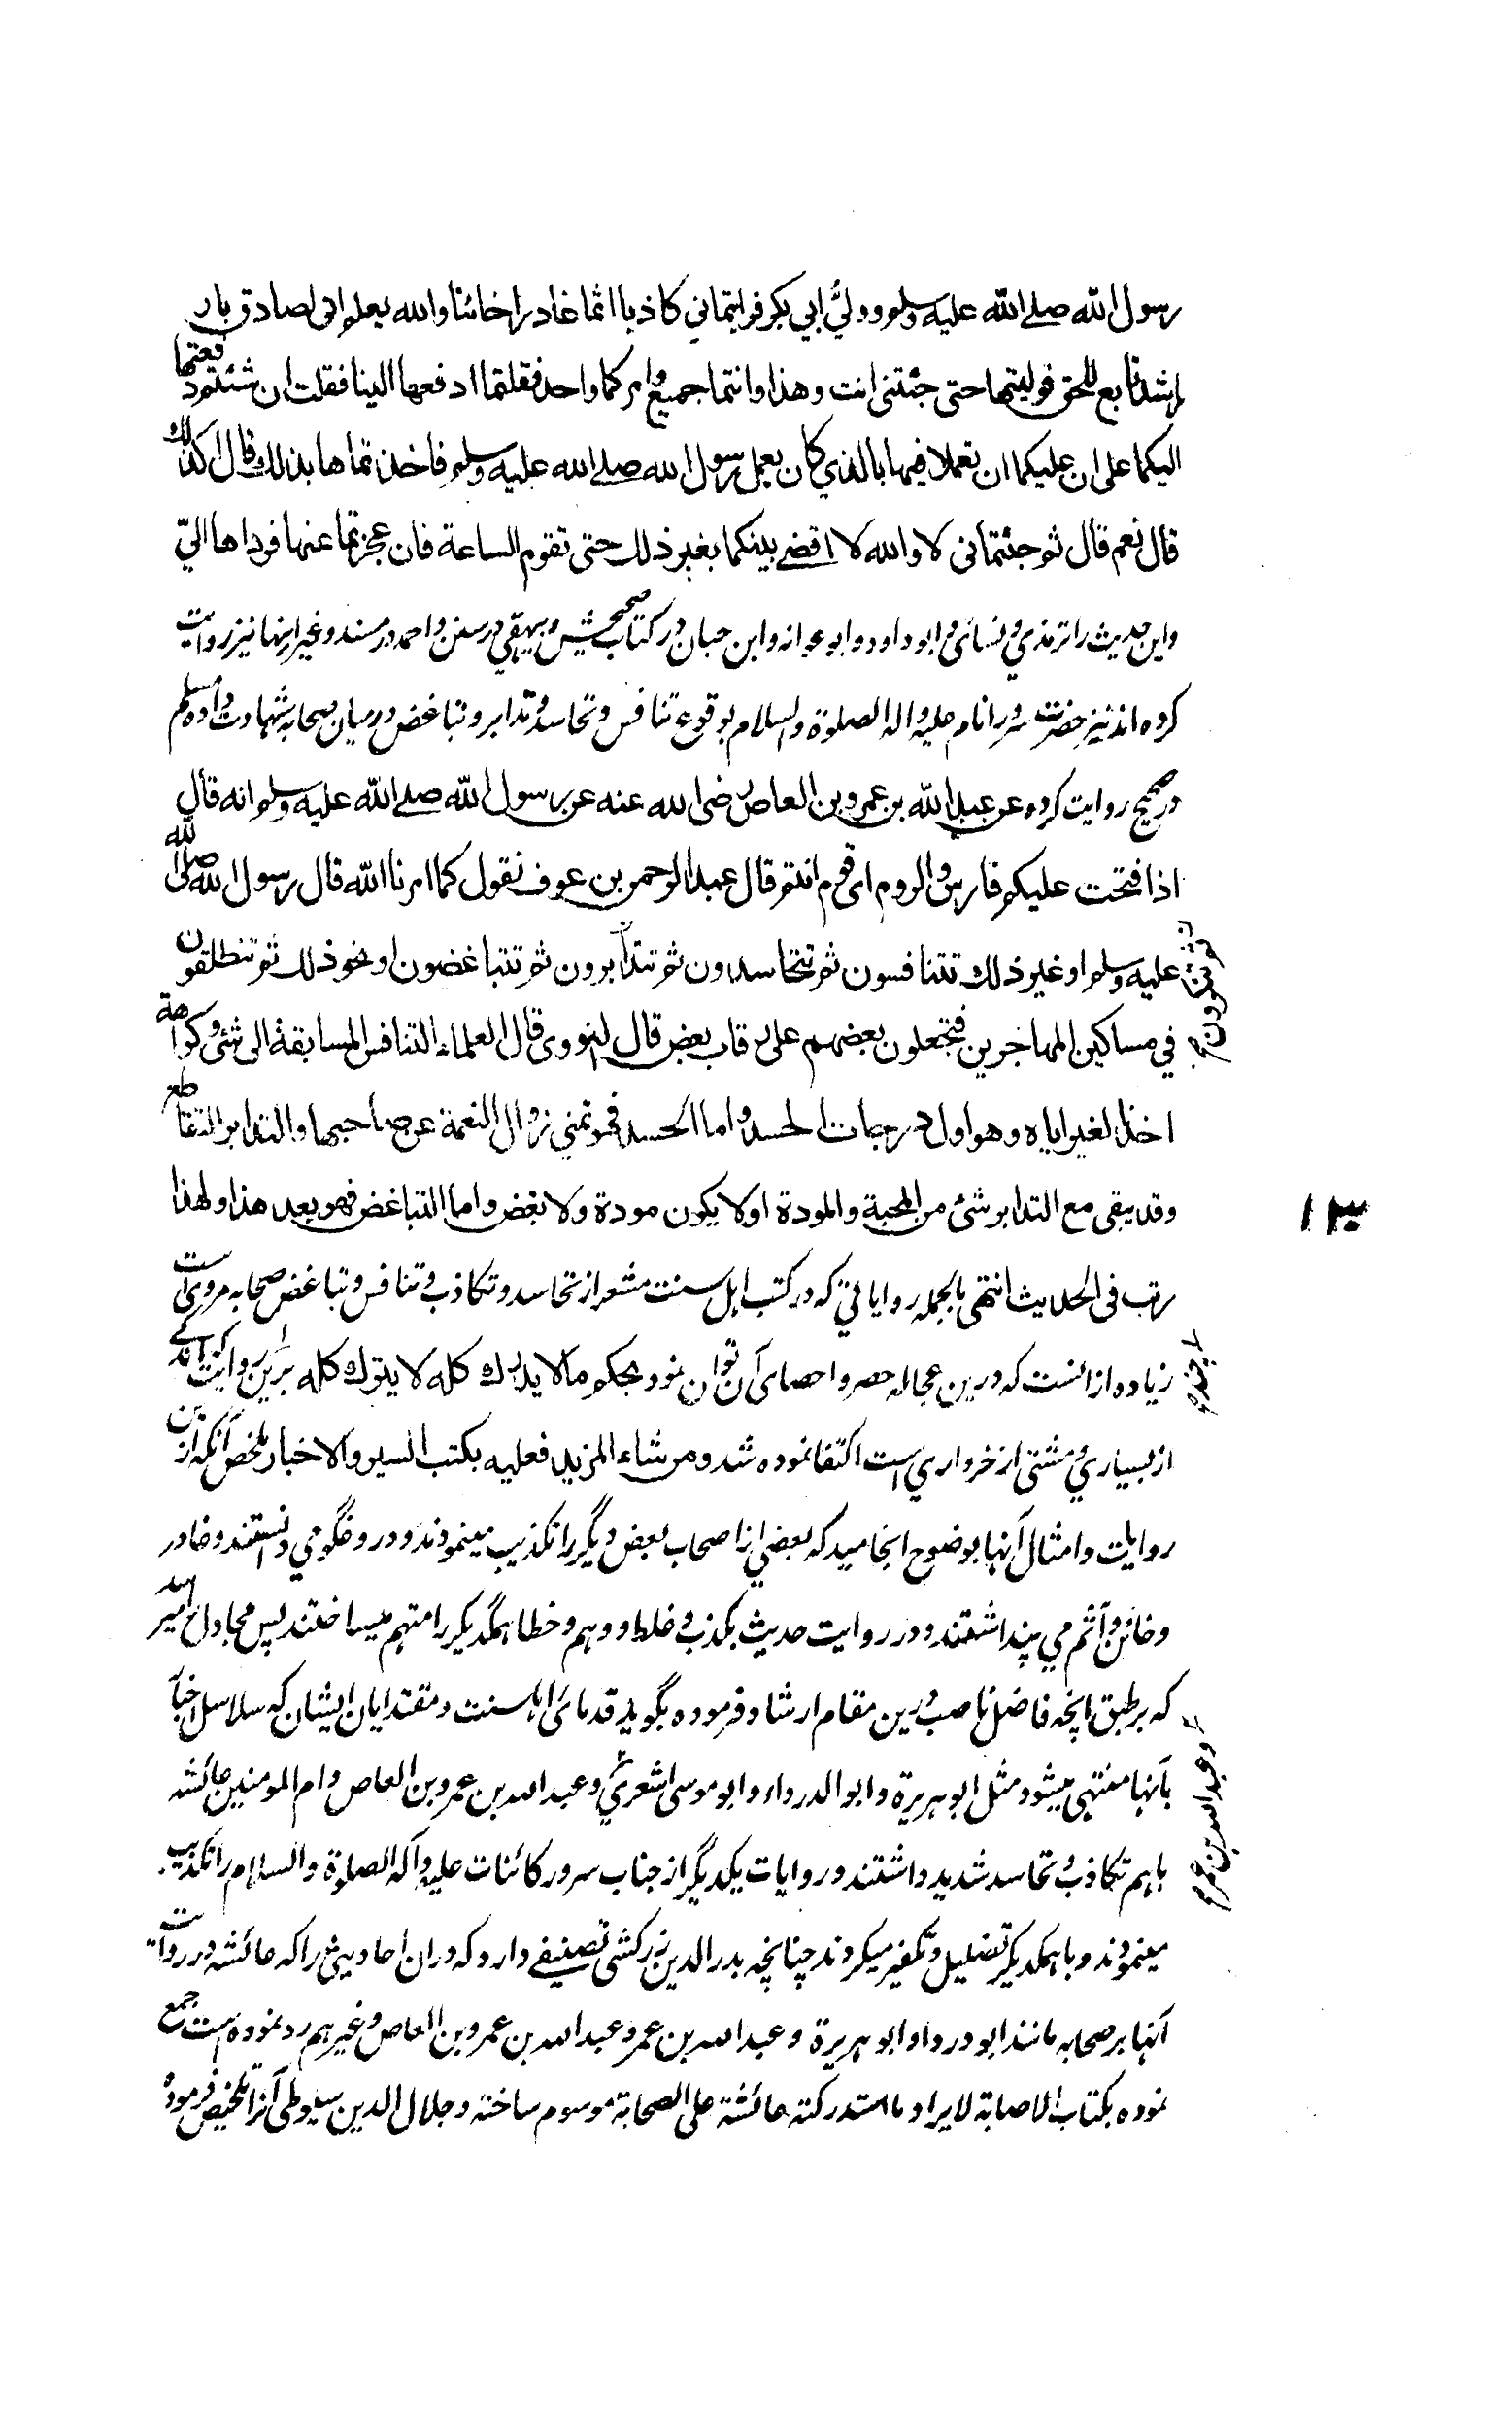 رسول الله صلے الله عليه وسلم وولىّ ابي بكر فرايتماني كاذبا اثما غادرا خائنا والله يعلم انى لصادق بار
راشد تابع للحق فوليتها حتى جئتنى انت وهذا وانتما جميع وامركما واحد فقلتما ادفعها الينا فقلت ان شئتم دفعتها
اليكما على ان عليكما ان تعملا فيها بالذي كان يعمل رسول الله صلے الله عليه وسلم فاخذتماها بذلك قال اكذلك
قال نعم قال ثم جئتمانى لا والله لا اقضے بينكما بغير ذلك حتى تقوم الساعة فان عجزتما عنها فرداها الىّ
واين حديث را ترمذي و نسائى و ابو داود و ابو عوانه و ابن حبان در كتاب صحيحش و بيهقي در سنن و احمد در مسند و غير اينها نيز روايت
كرده اند نيز حضرت سرور انام عليه واله الصلوة والسلام بوقوع تنافس و تحاسد و تدابر و تباغض درميان صحابه شهادت داده مسلم
در صحيح روايت كرده عن عبد الله بن عمرو بن العاص رضى الله عنه عن رسول الله صلے الله عليه وسلم انه قال
اذا فتحت عليكم فارس والروم اى قوم انتم قال عبد الرحمن بن عوف نقول كما امرنا الله قال رسول الله صلى الله
عليه وسلم او غير ذلك تتنافسون ثم تتحاسدون ثم تتدابرون ثم تتباغضون او نحو ذلك ثم تنطلقون
في مساكين المهاجرين فتجعلون بعضهم على رقاب بعض قال النووى قال العلماء التنافس المسابقة الى شئ وكراهة
اخذ لغير اياه وهو اول درجات الحسد واما الحسد فهو تمني زوال النعمة عن صاحبها والتدابر التقاطع
وقد يبقى مع التدابر شئ من المحبة والمودة اولا يكون مودة ولا بغض واما التباغض فهو بعد هذا ولهذا
۱۳
رتب فى الحديث انتهى بالجمله رواياتي كه در كتب اهل سنت مشعر از تحاسد و تكاذب و تنافس و تباغض صحابه مروي است
زياده از انست كه درين عجاله حصر و احصاى آن توان نمود بحكم ما لا يدرك كله لا يترك كله برين روايت كه اندكے
از بسياري و مشتى از خرواري است اكتفا نموده شد ومن شاء المزيد فعليه بكتب السير والاخبار ملخص آنكه ازين
روايات و امثال آنها بوضوح انجاميد كه بعضي از اصحاب بعض ديگر را تكذيب مينمودند و دروغگو مي دانستند و غادر
و خائن و آثم مي پنداشتند و در روايت حديث بكذب و غلط و وهم و خطا همگديگر را متهم ميساختند پس مجادل را ميرسد
كه بر طبق انچه فاضل ناصب درين مقام ارشاد فرموده بگويد قدمائى اهل سنت و مقتدايان ايشان كه سلاسل اخبار
بآنها منتهى ميشود مثل ابو هريرة و ابو الدرداء و ابو موسى اشعري و عبد الله بن عمرو بن العاص و ام المومنين عائشه
و عبد الله بن عمر
باهم تكاذب و تحاسد شديد داشتند و روايات يكديگر از جناب سرور كائنات عليه وآله الصلوة والسلام را تكذيب
مينمودند و با همگديگر تضليل و تكفير ميكردند چنانچه بدر الدين زركشى تصنيفے دارد كه دران احاديثى را كه عائشه در روايت
آنها بر صحابه مانند ابو دردا و ابو هريرة و عبد الله بن عمر و عبد الله بن عمرو بن العاص و غيرهم رد نموده است جمع
نموده بكتاب الاصابة لايراد ما استدركته عائشة على الصحابة موسوم ساخته و جلال الدين سيوطى آنرا تلخيص فرموده